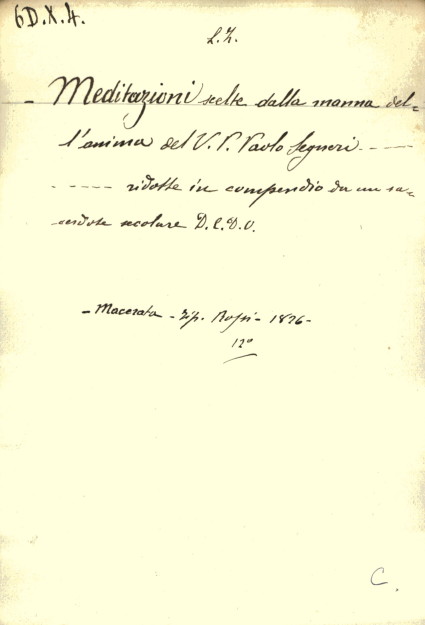 6D.X.4.
L.Z.
- Meditazioni scelte dalla manna del=
l'anima del V. P. Paolo Segneri - - -
- - - - ridotte in compendio da un sa=
cerdote secolare D.L.D.V.
- Macerata - Tip. Rossi - 1826 -
12°
C.